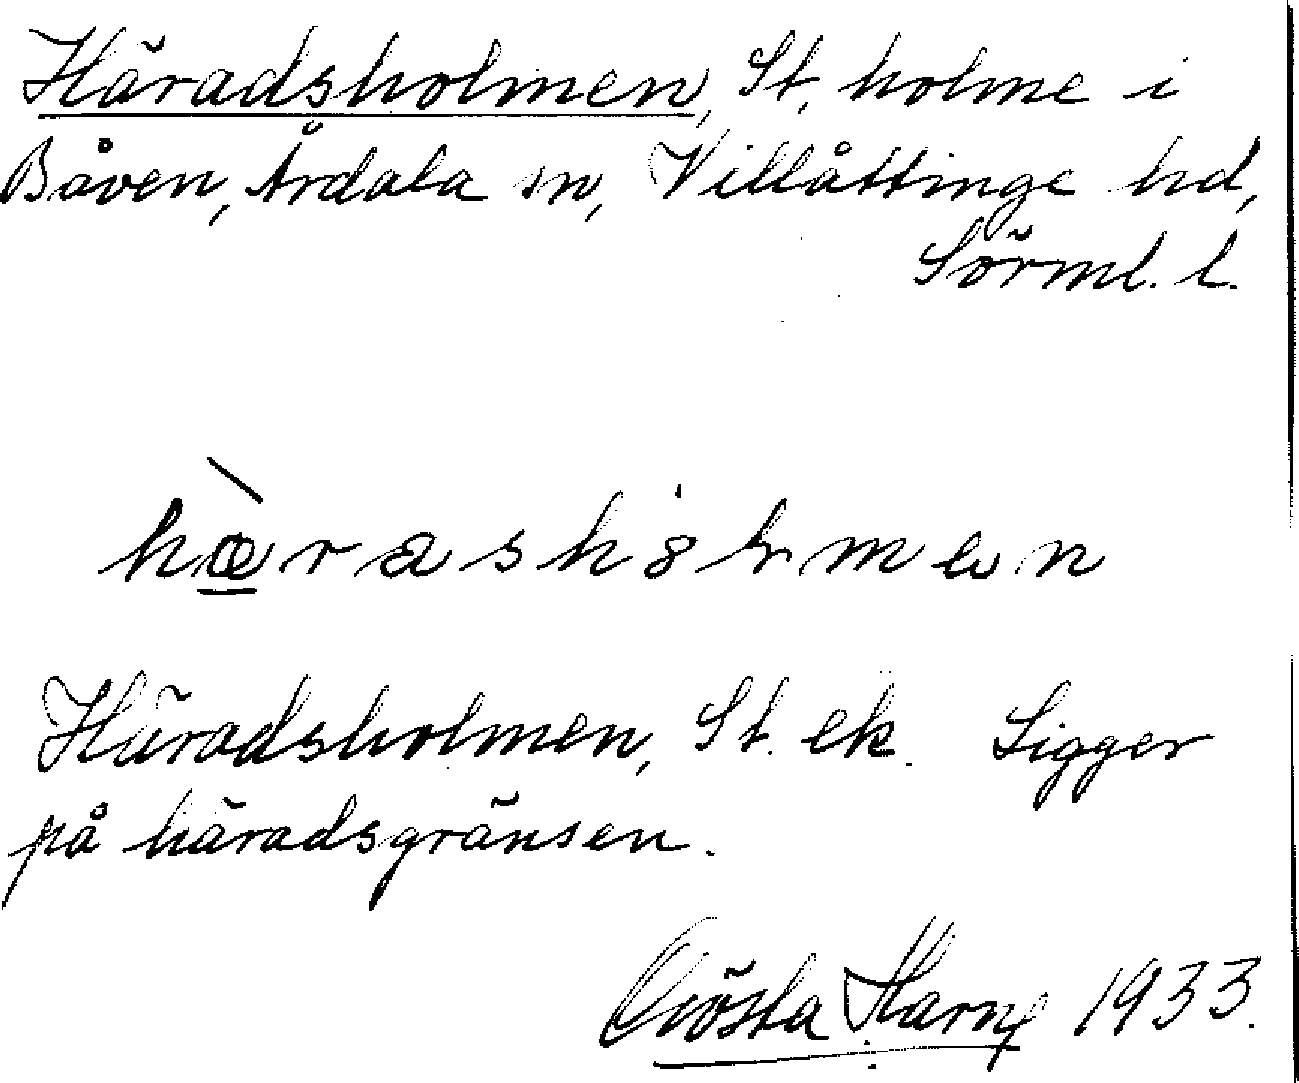 Häradsholmen, St. holme i
Båven, Årdala sn, Villåttinge hd,
Sörml. l.
hæ̀rashòlmen
Häradsholmen, St. ek. Ligger
på häradsgränsen.
Gösta 1933.